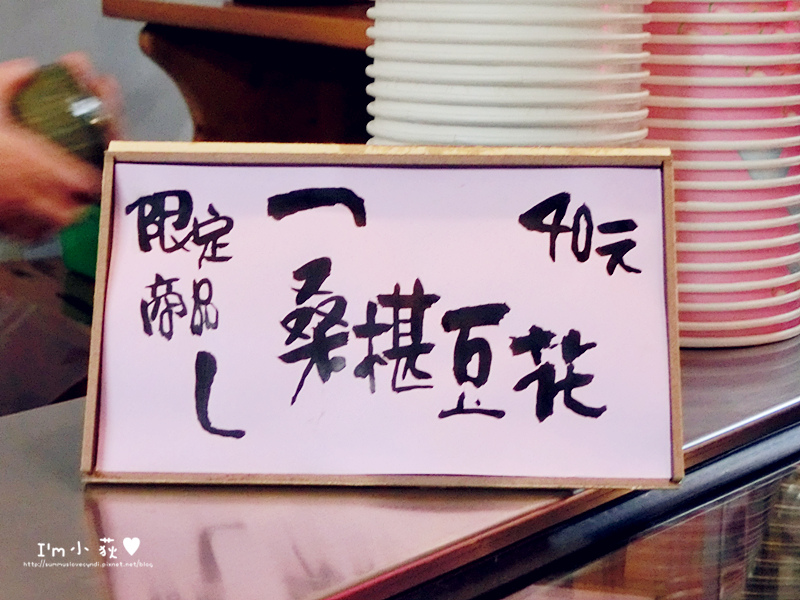 限定
商品
桑椹豆花
40元
I'm 小荻♥
http://summuslovecyndi.pixnet.net/blog